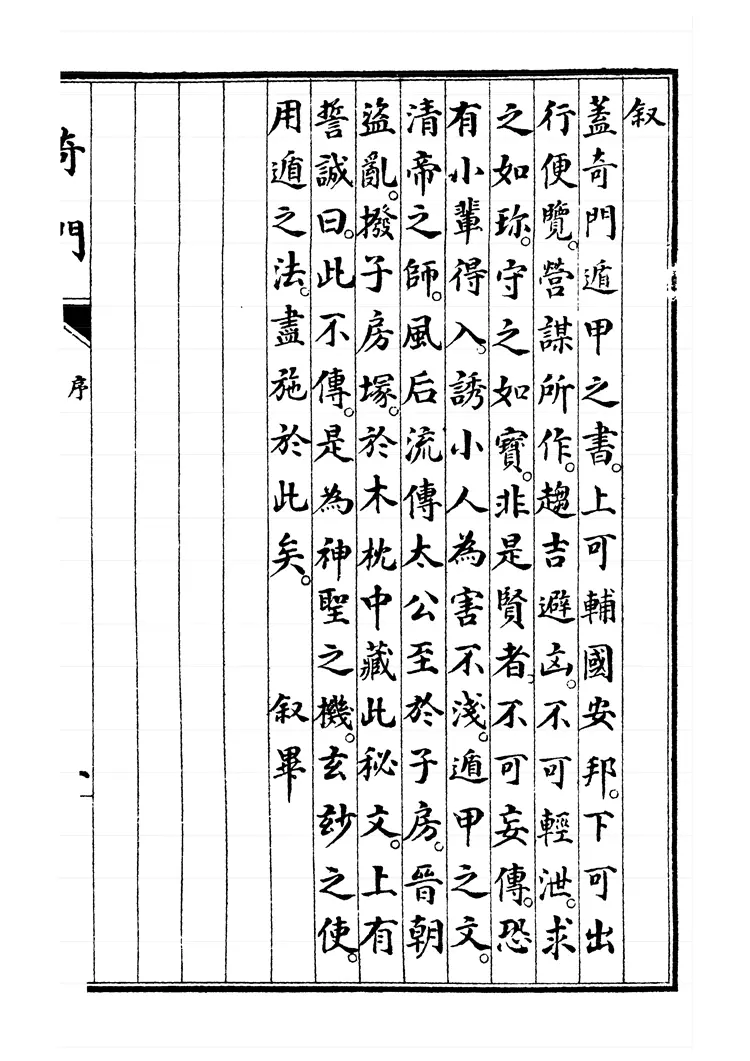 叙
蓋奇門遁甲之書。上可輔國安邦。下可出
行便覽。營謀所作。趨吉避凶。不可輕泄。求
之如珎。守之如寶。非是賢者。不可妄傳。恐
有小輩得入。誘小人為害不淺。遁甲之文。
清帝之師。風后流傳太公至於子房。晉朝
盜亂。撥子房塚。於木枕中藏此秘文。上有
誓誠曰。此不傳。是為神聖之機。玄玅之使。
用遁之法。盡施於此矣。 叙畢
奇門
序